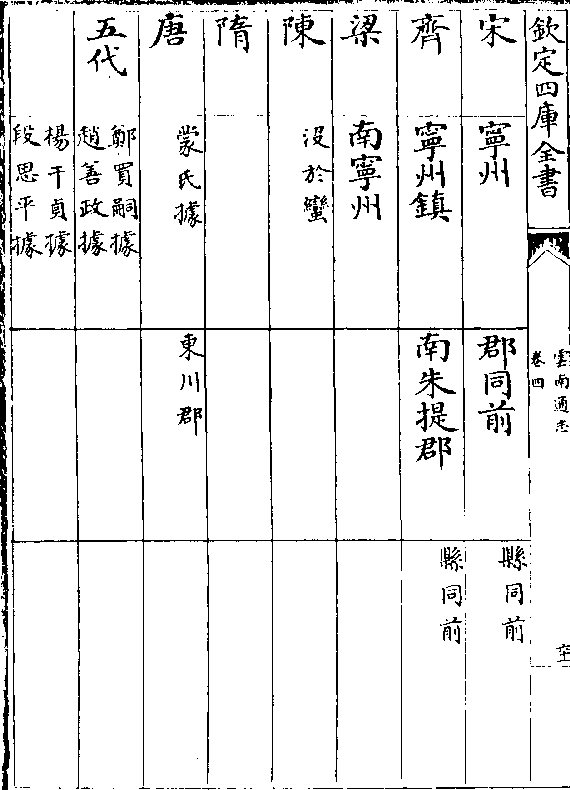 欽定四庫全書
雲南通志
卷四
宋
寧州
郡同前
縣同前
齊
寧州鎮
南朱提郡
縣同前
梁
南寧州
陳
沒於蠻
隋
唐
蒙氏據
東川郡
五代
鄭買嗣據
趙善政據
楊干貞據
段思平據